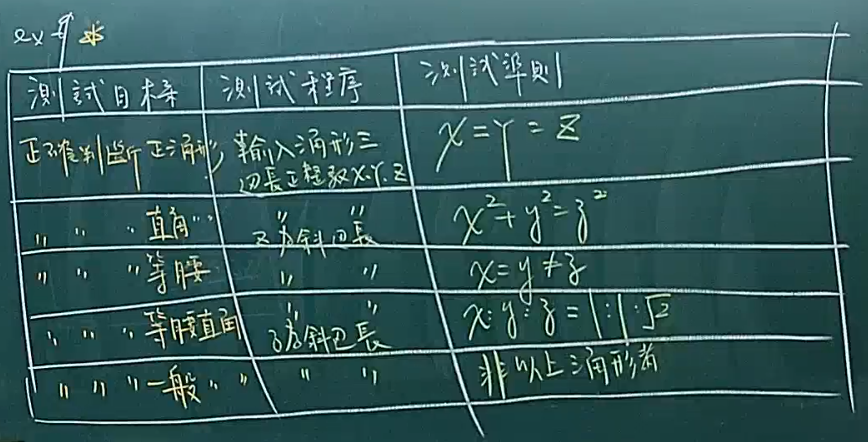 ex
測試目標 測試程序 測試準則
正確判斷正三角形 輸入三角形三
邊長正整數X.Y.Z
X=Y=Z
〃 〃 〃 直角 〃 〃 〃 〃
Z為斜邊長
x²+y²=z²
〃 〃 〃 等腰 〃 〃 x=y≠z
〃 〃 〃 等腰直角 〃 〃
z為斜邊長
x:y:z=1:1:√2
〃 〃 〃 一般 〃 〃 〃 〃 非以上三角形者